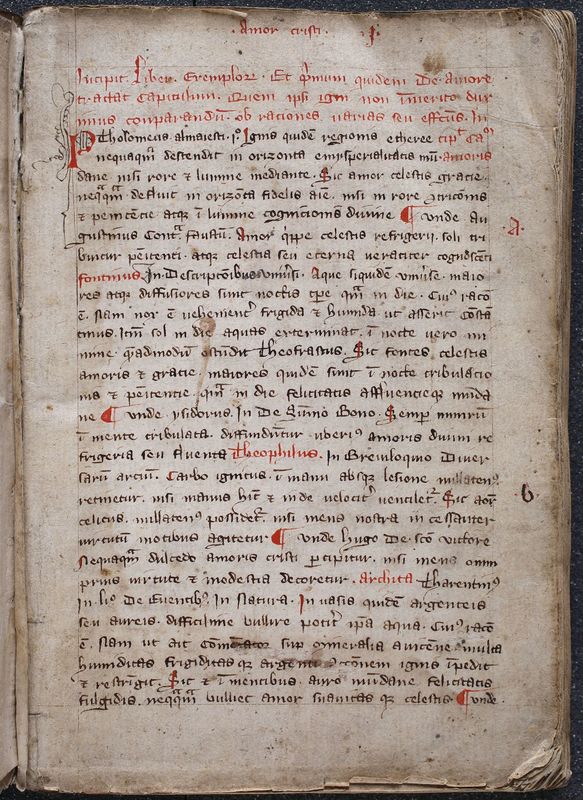 · Amor cristi · I·
Incipit · Liber · Exemplor · Et p̄mum quidem De · amore
tractat Capitulum · Quem ipsi igni non īmerito dux
imus conparandū · ob rationes · varias seu effc̄us · In
Ptholomeus · almaiesti · Ignis quidē regionis etheree cip̄t
nequaqm̄ descendit in orizonta amoris
dane nisi rore & lumine mediante · Sic amor celestis gracie ·
neqq̄m defluit in orizōta fidelis aīe · nisi in rore
& penitēcie atqꝫ ī lumine cognicionis divine ¶ Unde au
gustinus Contᵃ · faustū · Amor qͥppe celestis refrigerii · soli tri
buitur penitenti · atqꝫ celestia seu eterna veraciter cognoscēti
fontinus In Descriptōibus · Aque siquidē maio
res atqꝫ diffusiores sunt noctis tp̄e qm̄ in die · Cuiꝰ racō
ē · Nam nox ē vehementˢ frigida & humida ut asserit Cōstā
tinus · Itm̄ sol in die aquas exterminat · ī nocte vero mi
nime · q̄admodū ostūdit Theofrastus · Sic fontes celestis
amoris & gracie · maiores quidē sunt ī nocte tribulacio
nis & penitencie · qm̄ in die felicitatis affluencieqꝫ mūda
ne ¶ Unde ysidorus · In De Sūmo Bono · Semper nimirū
ī mente tribulata · diffundūtur uberiꝰ amoris divini re
frigeria seu fluenta Theophilus · In Breviloquio Diver
sarū arciū · Carbo ignitus · ī manu absqꝫ lesione nullatenꝰ
retinetur · nisi manus hīc & inde velocitˢ ventiletᵣ · Sic aōr
celicus · nullatenꝰ possidetᵣ · nisi mens nostra incessanter
virtutū motibus agitetur ¶ Unde Hugo De · scō victore
Nequaqm̄ dulcedo amoris cristi percipitur · nisi mens omni
prius virtute & modestia decoretur · Archita Tharentinꝰ
In liᵒ De Eventibꝰ · In Natura · In vasis quidē argenteis
seu aureis · difficilime bullire potitˢ ip̄a aqua · Cuiꝰ racō
ē · Nam ut ait Cōmētator suꝑ avicēne · multa
humiditas frigiditasqꝫ argenti ignis īpedit
& restrīgit · Sic & ī mentibus · auro mūdane felicitatis
fulgidis · neqq̄m bulliet amor suavitasqꝫ celestis ¶ Unde
·A·
·b·